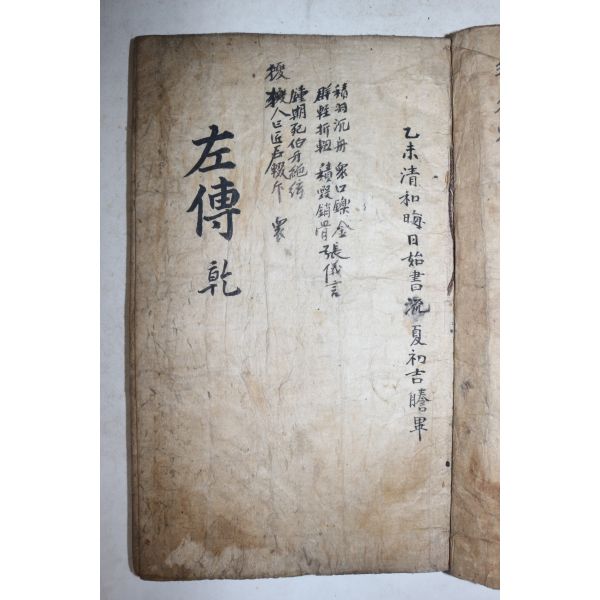 乙未清和晦日始書流夏初吉謄畢
積羽沉舟 衆口鑠金
群輕折軸 積毀銷骨 張儀言
鍾期死伯牙絶絃
人亡匠石輟斤 衆
左傳 乾